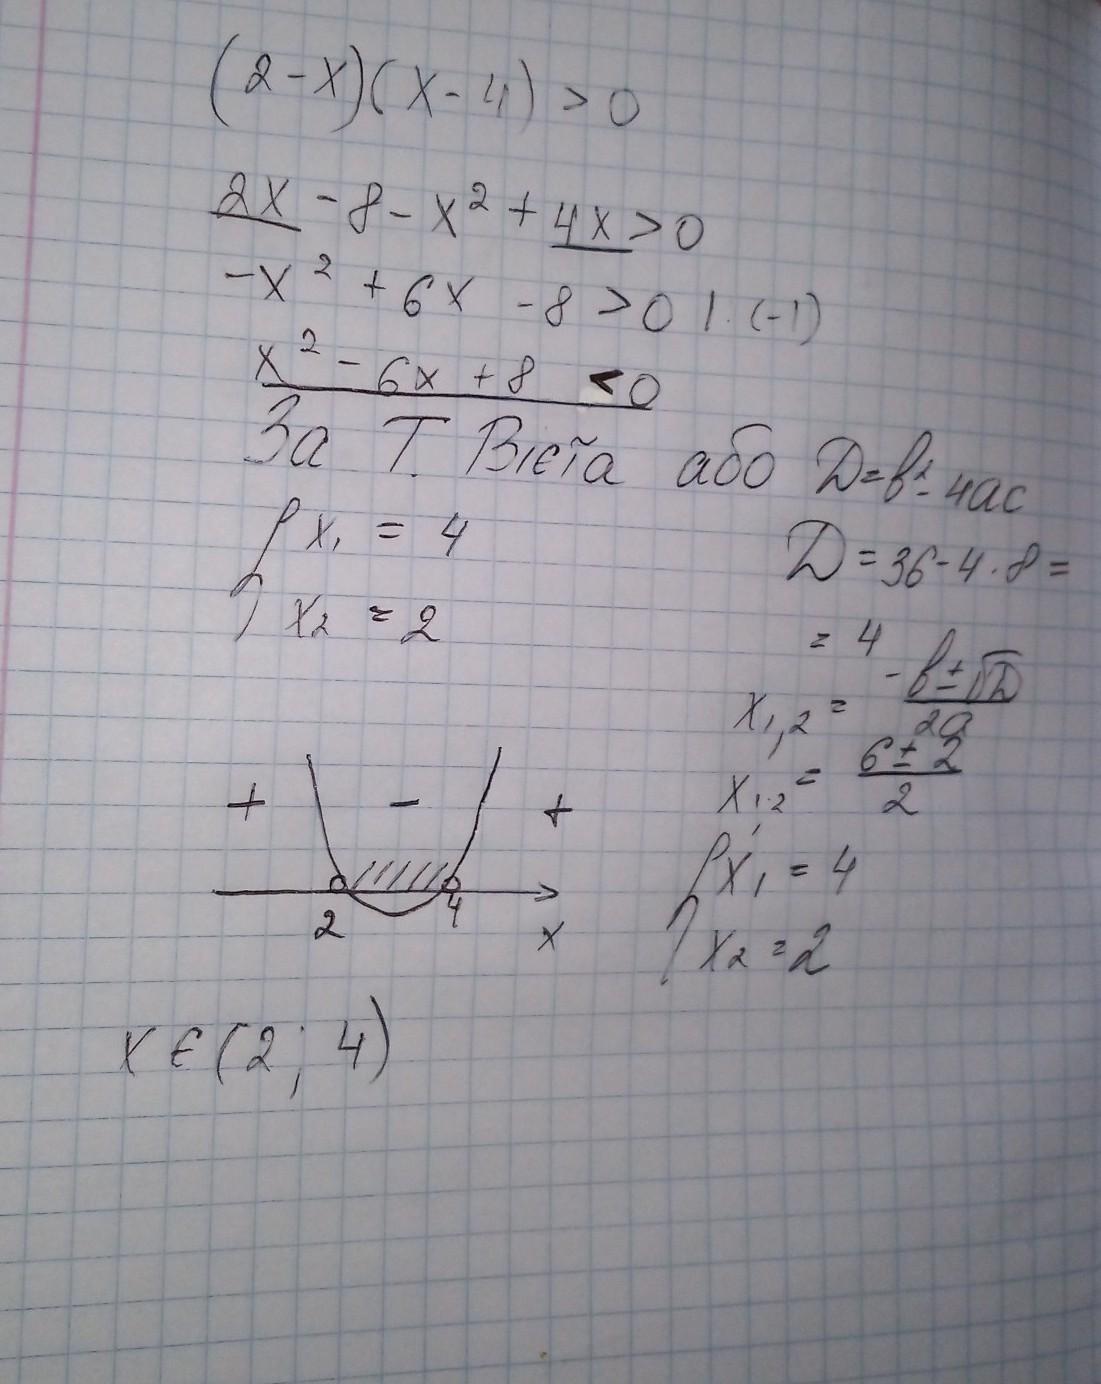 (2-x)(x-4)>0
2x-8-x²+4x>0
-x²+6x-8>0 |·(-1)
x²-6x+8<0
За Т. Вієта або D=b²-4ac
x₁=4
x₂=2
D=36-4·8=
=4
x₁,₂=(-b±√D)/2a
x₁,₂=(6±2)/2
x₁=4
x₂=2
+ - +
2 4 x
x∈(2; 4)